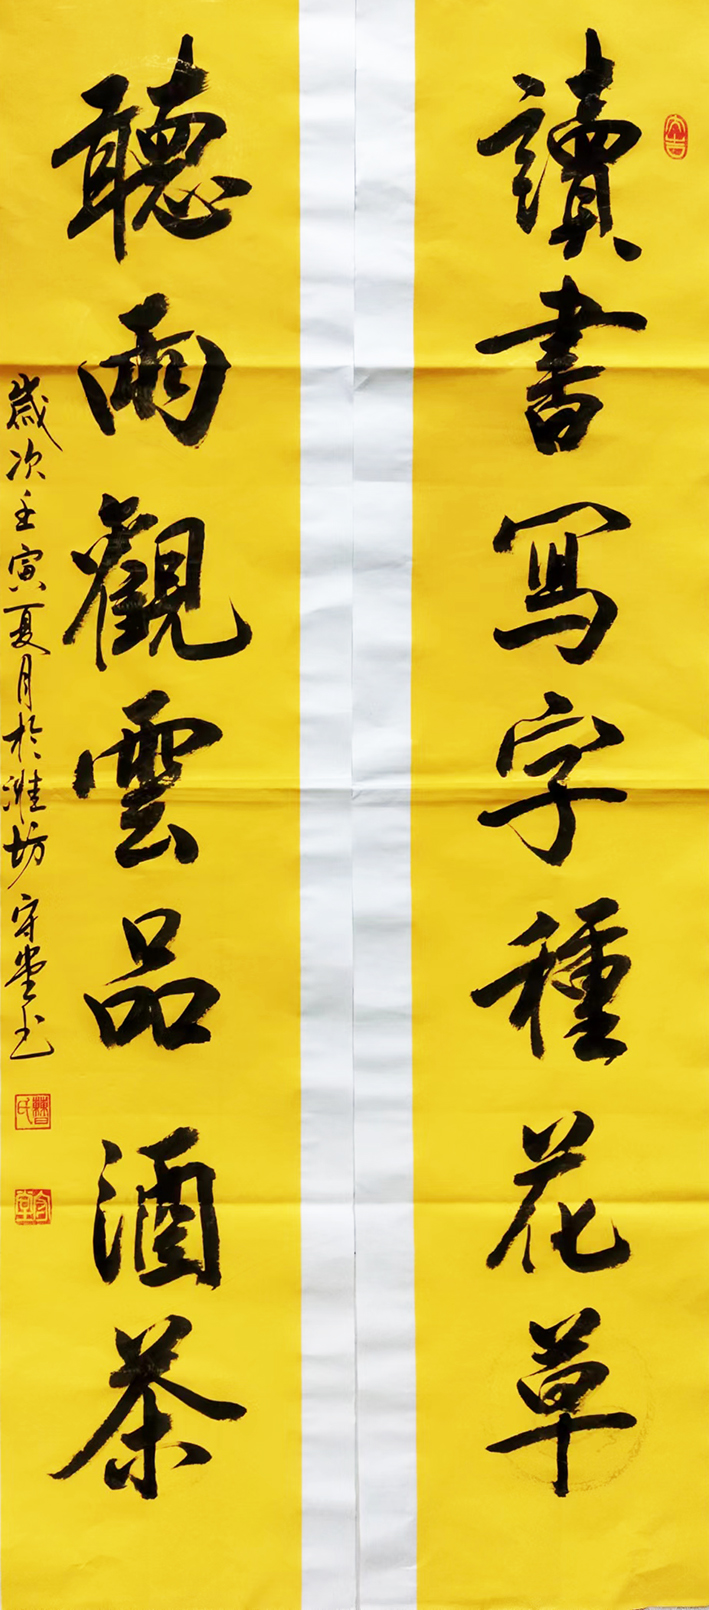 讀書寫字種花草
聽雨觀雲品酒茶
歲次壬寅夏月於濰坊守堂书